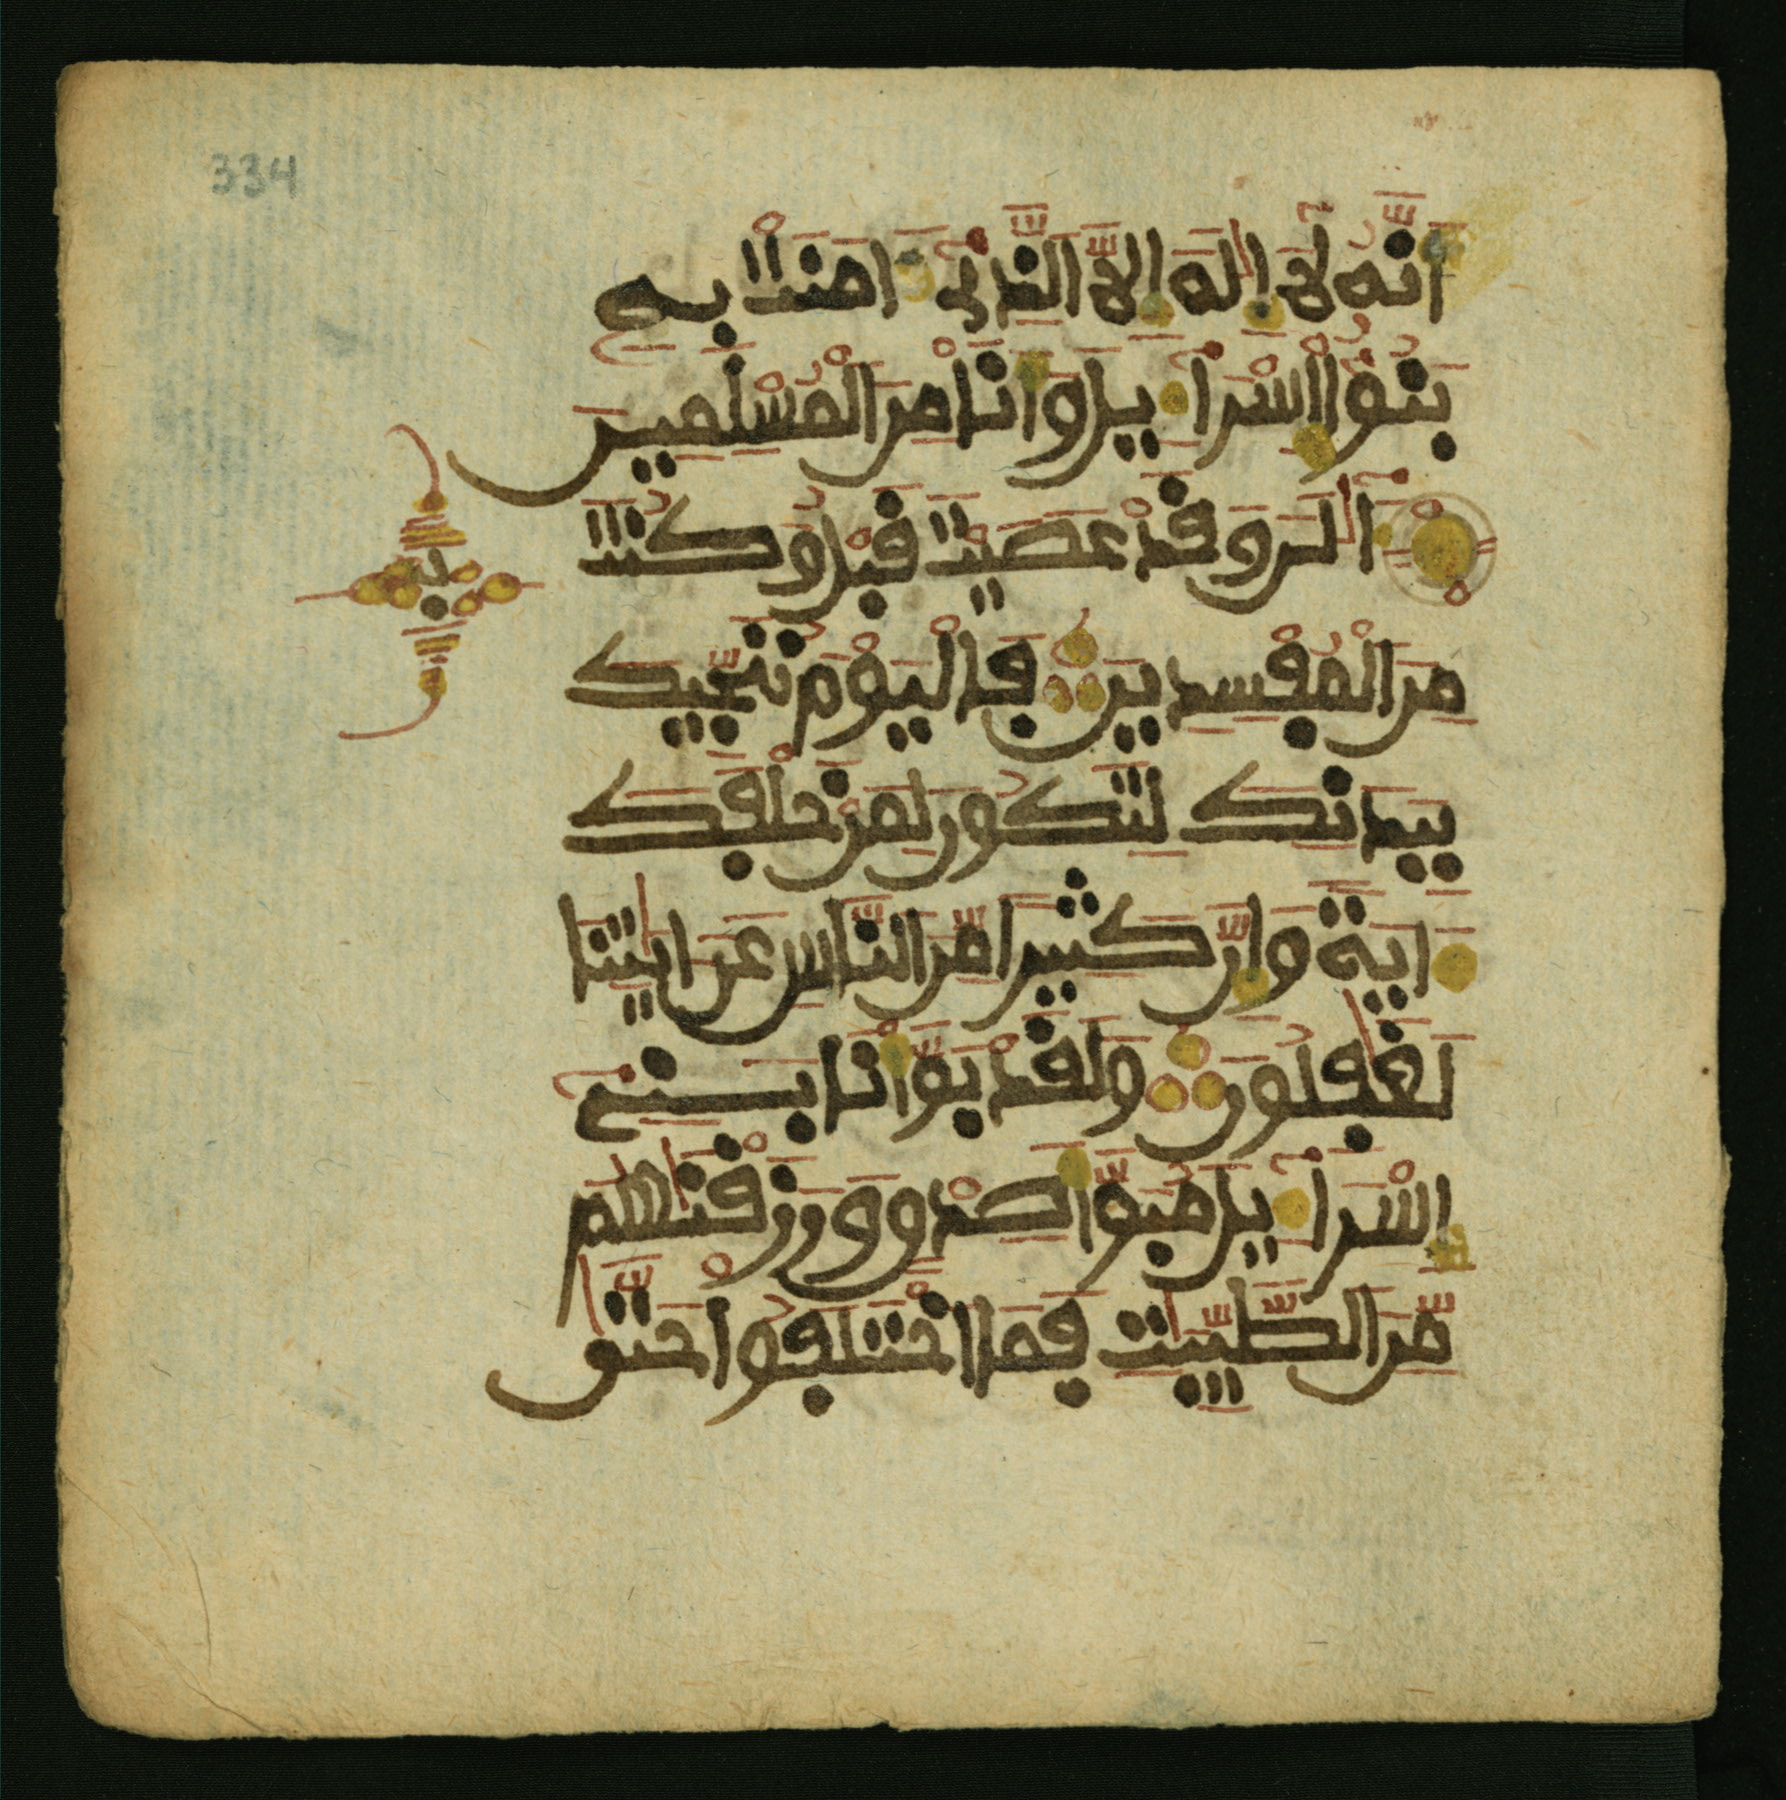 334
اَنَّهُۥ لَآ إِلَٰهَ إِلَّا اَ۬لذِےٓ ءَامَنَتْ بِهِۦ
بَنُوٓاْ إِسْرَآءِيلَ وَأَنَا مِنَ اَ۬لْمُسْلِمِينَ
ءَآلَٰنَ وَقَدْ عَصَيْتَ قَبْلُ وَكُنتَ
مِنَ اَ۬لْمُفْسِدِينَ فَالْيَوْمَ نُنَجِّيكَ
بِبَدَنِكَ لِتَكُونَ لِمَنْ خَلْفَكَ
ءَايَةً وَإِنَّ كَثِيراً مِّنَ اَ۬لنَّاسِ عَنَ اٰيَٰتِنَا
لَغَٰفِلُونَ وَلَقَدْ بَوَّأْنَا بَنِےٓ
إِسْرَآءِيلَ مُبَوَّأَ صِدْقٍ وَرَزَقْنَٰهُم
مِّنَ اَ۬لطَّيِّبَٰتِ فَمَا اَ۪خْتَلَفُواْ حَتَّىٰ